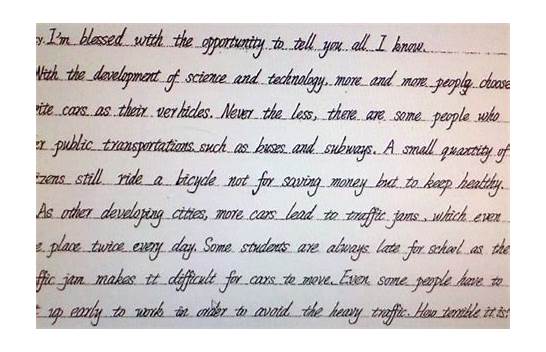 I'm blessed with the opportunity to tell you all I know.
With the development of science and technology, more and more peoply choose
cars as their verhicles. Never the less, there are some people who
public transportations such as buses and subways. A small quantity of
still ride a bicycle not for saving money but to keep healthy.
As other developing cities, more cars lead to traffic jams, which even
place twice every day. Some students are always late for school as the
jam makes it difficult for cars to move. Even some people have to
up early to work in order to avoid the heavy traffic. How terrible it is!